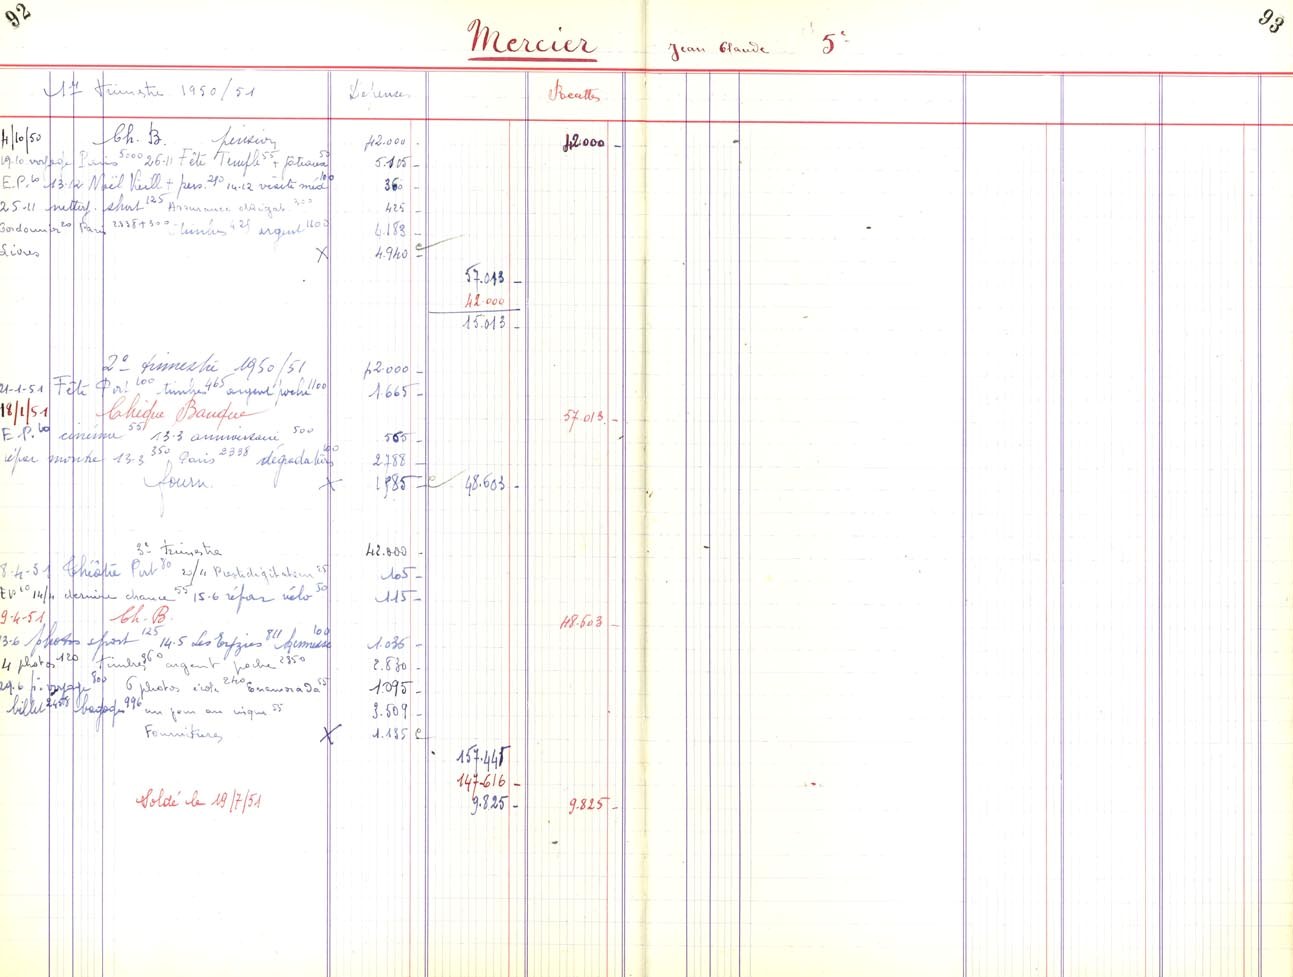 92
93
Mercier Jean Claude 5e
1er trimestre 1950/51 Dépenses Recettes
4/10/50 Ch. B. pension 42.000 - 42.000 -
19.10 voyage Paris 5000 26-11 Fête Temple 55 + gâteaux 50 5.105 -
E.P. 60 13-12 Noël Vieill + pers. 200 14-12 visite méd 100 360 -
25-11 nettoy. short 125 Assurance 300 425 -
Cordonnier 20 Paris 2338+300 timbres 425 argent 1100 4.183 -
Livres X 4.940 -
57.013 -
42.000
15.013 -
2e trimestre 1950/51 42.000 -
21-1-51 Fête Port 100 timbres 465 argent poche 1100 1.665 -
18/1/51 Chèque Banque 57.013 -
E.P. 60 cinéma 55 13-3 anniversaire 500 565 -
répar montre 13-3 350 Paris 2338 dégradations 100 2788 -
fourn. X 1985 - 48.603 -
3e trimestre 42.000 -
8-4-51 Théâtre Port 80 20/4 Prestidigitation 25 105 -
EP 10 14/4 dernière chance 55 15-6 répar vélo 50 115 -
9-4-51 Ch. B. 48.603 -
13-6 photos sport 125 14.5 Les Eyzies 811 kermesse 100 1.036 -
4 photos 120 timbres 360 argent poche 2350 2.830 -
29.6 voyage 800 6 photos école 240 Enamorada 55 1095 -
billet 2458 bagages 996 un jour au cirque 55 3.509 -
Fournitures X 1.185
157.441
147.616 -
Soldé le 19/7/51 9.825 - 9.825 -